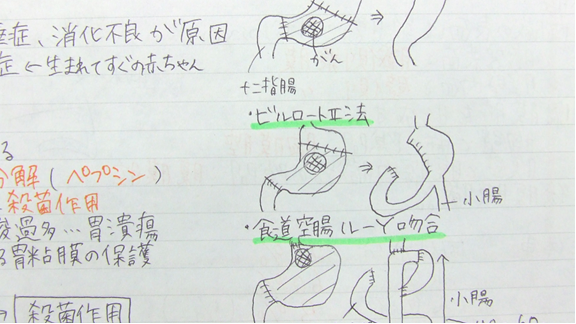 症、消化不良が原因
症 ← 生まれてすぐの赤ちゃん
がん
十二指腸
・ビルロートⅡ法
る
分解(ペプシン)
殺菌作用
小腸
過多…胃潰瘍
・食道空腸(ルーY吻合
胃粘膜の保護
小腸
殺菌作用